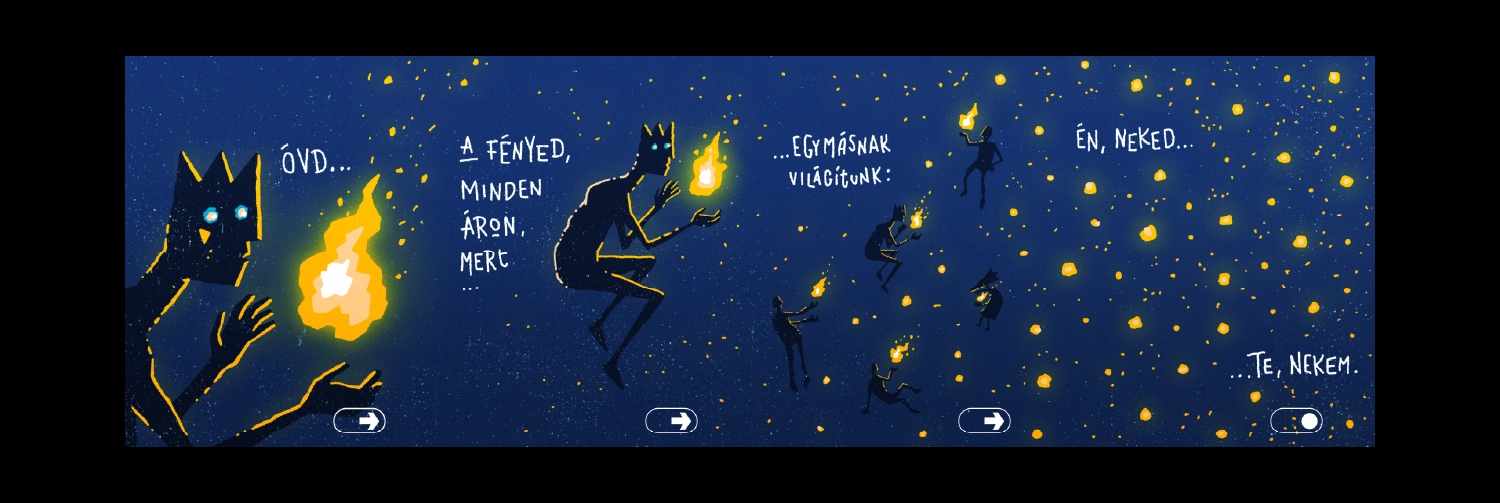 ÓVD...
A FÉNYED,
MINDEN
ÁRON,
MERT
...
...EGYMÁSNAK
VILÁGÍTUNK:
ÉN, NEKED...
...TE, NEKEM.